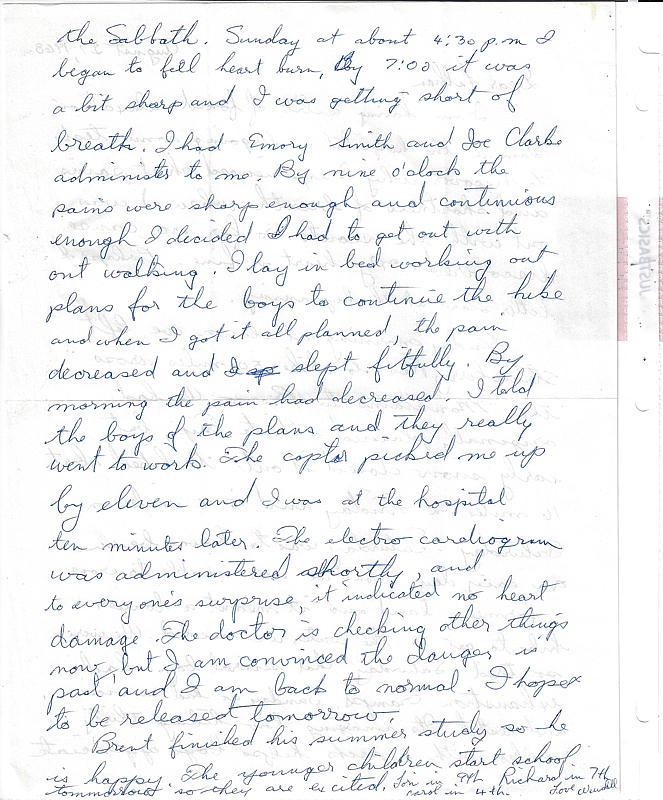 the Sabbath. Sunday at about 4:30 p.m I
began to fell heart burn, By 7:00 it was
a bit sharp and I was getting short of
breath. I had Emory Smith and Joe Clarke
administer to me. By nine o'clock the
pains were sharp enough and continuious
enough I decided I had to get out with
ont walking. I lay in bed working out
plans for the boys to continue the hike
and when I got it all planned, the pain
decreased and I slept fitfully. By
morning the pain had decreased. I told
the boys of the plans and they really
went to work. The coptor picked me up
by eleven and I was at the hospital
ten minutes later. The electro cardiogram
was administered shortly, and
to everyone's surprise, it indicated no heart
damage. The doctor is checking other things
now, but I am convinced the danger is
past, and I am back to normal. I hope
to be released tomorrow.
Brent finished his summer study so he
is happy. The younger children start school
tommorrow so they are excited. Lori in 9th Richard in 7th
Carol in 4th. Love Wendell
JUSTBASICS